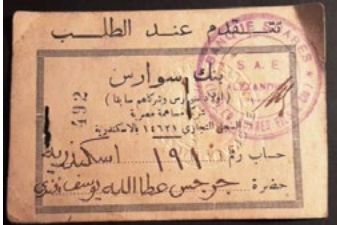 تتقدم عند الطلب
بنك سوارس
(اولاد سوارس وشركاهم سابقا)
شركة مساهمة مصرية
السجل التجارى ١٤٦٢١ بالاسكندرية
حساب رقم ١٩١٠ اسكندرية
حضرة جرجس عطاالله يوسف افندى
492
BANQUE SUARES
S. A. E.
ALEXANDRIE